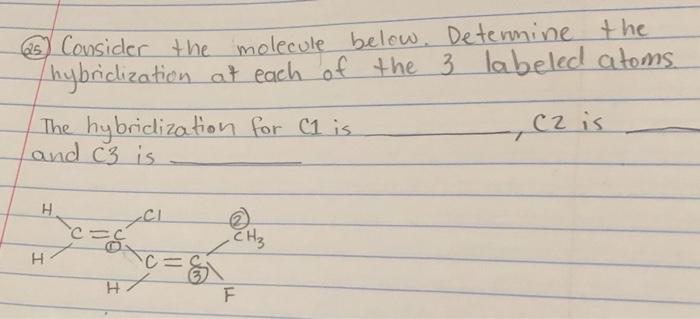 25) Consider the molecule below. Determine the
hybridization at each of the 3 labeled atoms.
The hybridization for C1 is ________, C2 is ____
and C3 is ________
H Cl
C=C ②
① CH3
H C=C
③
H F